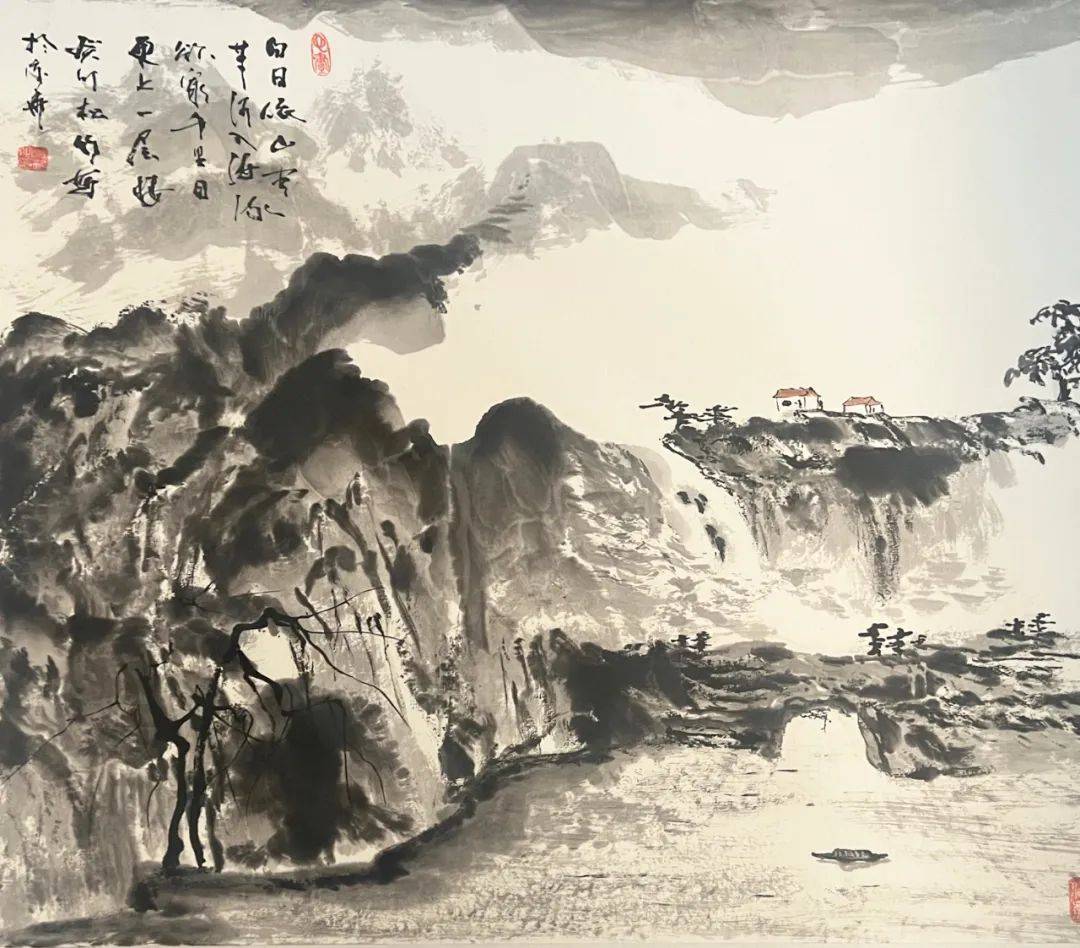 白日依山尽
黄河入海流
欲穷千里目
更上一层楼
癸卯松竹写
於